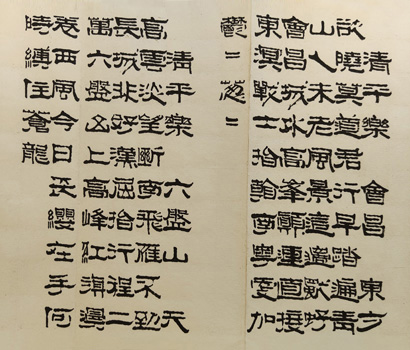 清平樂 會昌 東方
欲曉莫道君行早踏遍青
山人未老風景這邊獨好
會昌城外高峰顛連直接
東溟戰士指看南粵更加
鬱二蔥二
清平樂 六盤山 天
高雲淡望斷南飛雁不到
長城非好漢屈指行程二
萬六盤山上高峰紅旗漫
卷西風今日長纓在手何
時縛住蒼龍